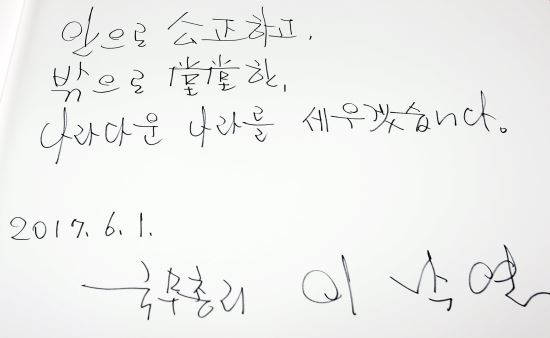 안으로 公正하고,
밖으로 堂堂한,
나라다운 나라를 세우겠습니다.
2017. 6. 1.
국무총리 이낙연